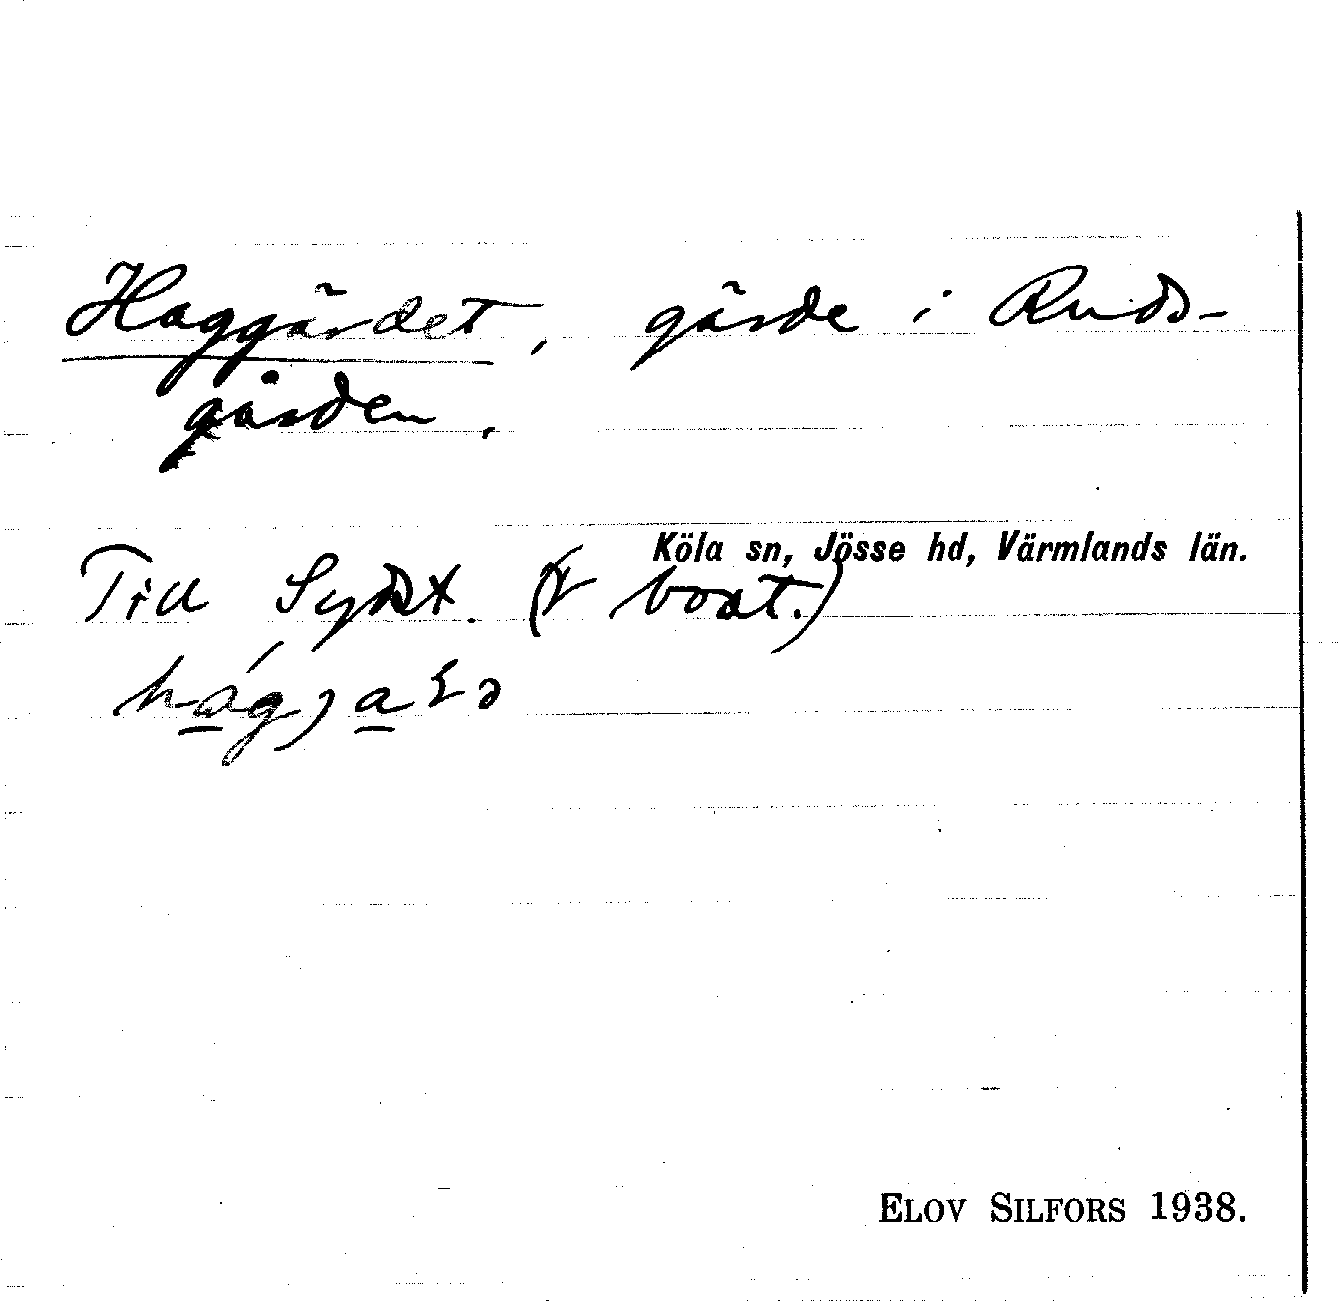 Haggärdet, gärde i Ruds-
gården.
Köla sn, Jösse hd, Värmlands län.
Till bort.)
ELOV SILFORS 1938.